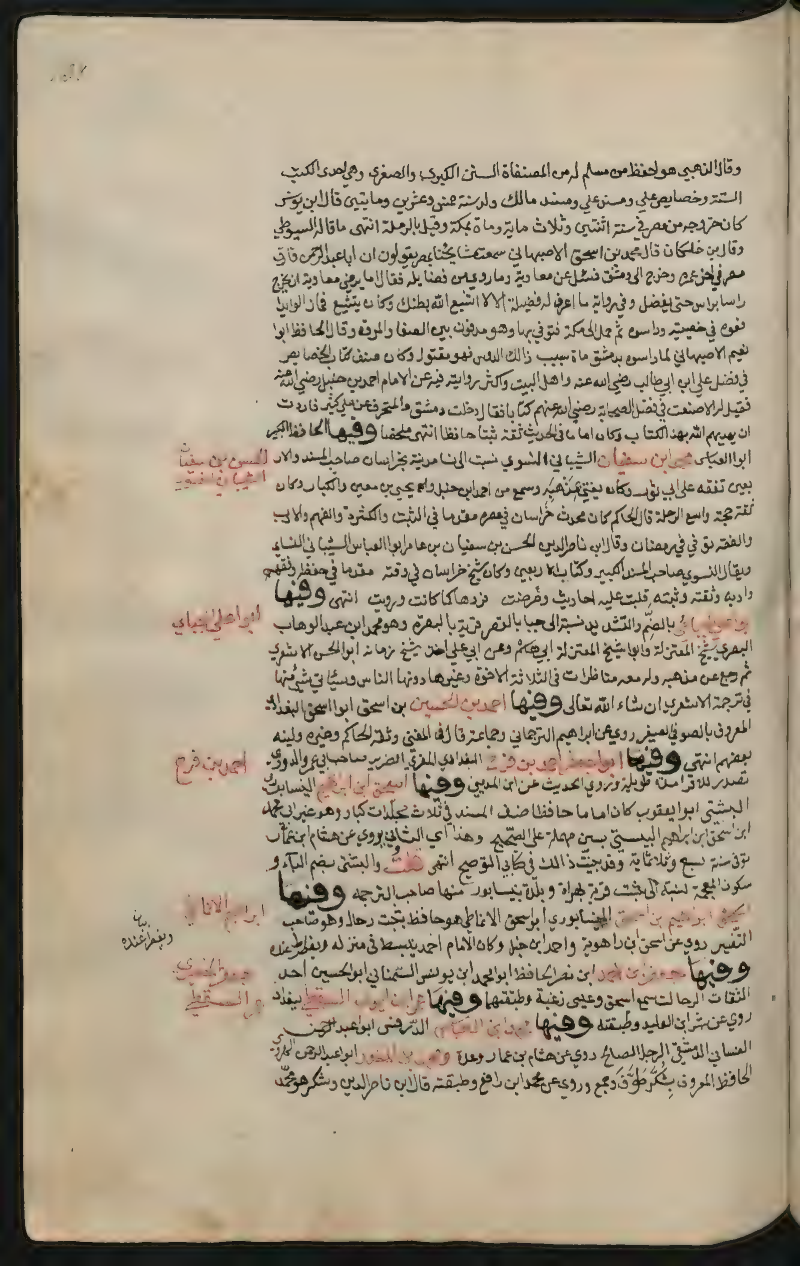 وقال الذهبي هو احفظ من مسلم له من المصنفاة السنن الكبرى والصغرى وهي احدى الكتب
الستة وخصايص علي ومسند علي ومسند مالك ولد سنة خمس وعشرين ومايتين قال ابن يونس
كان خروجه من مصر في سنة اثنتين وثلاث ماية ومات بمكة وقيل بالرملة انتهى ما قاله السيوطي
وقال بن خلكان قال محمد بن اسحق الاصبهاني سمعت مشايخنا بمصر يقولون ان ابا عبد الرحمن فارق
مصر في اخر عمره وخرج الى دمشق فسئل عن معاوية وما روي من فضايله فقال اما يرضى معاوية ان يخرج
راسا براس حتى يفضل وفي رواية ما اعرف له فضيلة الا لا اشبع الله بطنك وكان يتشيع فما زالوا يد
فعوه في خصيتيه وداسوه ثم حمل الى مكة فتوفي بها وهو مدفون بين الصفا والمروة وقال الحافظ ابوا
نعيم الاصبهاني لما داسوه بدمشق ماة بسبب ذالك الدوس فهو مقتول وكان صنف كتاب الخصايص
في فضل علي ابن ابي طالب رضي الله عنه واهل البيت واكثر روايته فيه عن الامام احمد بن حنبل رضي الله عنه
فقيل له الا صنعت في فضل الصحابة رضي الله عنهم كتابا فقال دخلت دمشق والمنحرف عن علي كثير فاردت
ان يهديهم الله بهذا الكتاب وكان اماما في الحديث ثقة ثبتا حافظا انتهى ملخصا وفيها الحافظ الكبير
ابوا العباس بن سفيان الشيباني النسوي نسبت الى نسا مدينة بخراسان صاحب المسند والار
بعين تفقه على ابي ثور وكان يفتي بمذهبه وسمع من احمد ابن حنبل ويحيى بن معين والكبار وكان
ثقة حجة واسع الرحلة قال الحاكم كان محدث خراسان في عصره مقدما في الثبت والكثرة والفهم والادب
والفقه توفي في رمضان وقال ابن ناصر الدين الحسن بن سفيان بن عامر ابوا العباس الشيباني النساي
ويقال النسوي صاحب المسند الكبير وكتاب الاربعين وكان شيخ خراسان في وقته مقدما في حفظه وفقهه
وادبه وثقته وثبته قلبت عليه احاديث وعرضت فردها كما كانت ورويت انتهى وفيها
ابو علي الجبائي بالضم والتشديد نسبة الى جبا بالقصر قرية بالبصرة وهو محمد ابن عبد الوهاب
البصري شيخ المعتزلة وابوا شيخ المعتزلة ابي هاشم وعن ابي علي اخذ شيخ زمانه ابوا الحسن الاشعري
ثم رجع عن مذهبه وله معه مناظرات في الثلاثة الاخوة وغيرها دونها الناس وسياتي شيء منها
في ترجمة الاشعري ان شاء الله تعالى وفيها احمد بن الحسين بن اسحق ابوا اسحق البغدادي
المعروف بالصوفي الصغير روى عن ابراهيم الترجماني وجماعة قال في المغني وثقه الحاكم وغيره ولينه
بعضهم انتهى وفيها ابوا جعفر احمد بن فرح البغدادي المقري الضرير صاحب ابي عمر والدوري
تصدر للاقرا مدة طويلة وروي الحديث عن ابن المديني وفيها اسحق ابن ابراهيم النيسابوري
البشتي ابوا يعقوب كان اماما حافظا صنف المسند في ثلاث مجلدات كبار وهو غير ابي محمد
ابن اسحق ابن ابراهيم البستي بسين مهملة على الصحيح وهذا اي الثاني يروي عن هشام ابن عمار
توفي سنة سبع وثلاثماية وقد بينت ذالك في كتابي الموضح انتهى قلت والبشتي بضم الباء و
سكون المعجمة نسبة الى بشت قرية بهراة وبلدة بنيسابور منها صاحب الترجمه وفيها
ابراهيم بن اسحق النيسابوري ابو اسحق الانماطي هو حافظ ثبت رحال وهو صاحب
التفسير روى عن اسحق ابن راهوية واحمد ابن حنبل وكان الامام احمد ينبسط في منزله ويفطر عنده
وفيها جعفر بن احمد ابن نصر الحافظ ابوا محمد ابن يونس السمناني ابوا الحسين احد
الثقات الرحالة سمع اسحق وعيسى زغبة وطبقتها وفيها عمر ابن ايوب السقطي ببغداد
روى عن بشر ابن الوليد وطبقته وفيها الدرفس ابوا عبد الرحمن
الغساني الدمشقي الرجل الصالح روى عن هشام بن عمار وعدة و محمد بن المنذر ابوا عبد الرحمن الهروي
الحافظ المعروف بشكر طوف وجمع وروى عن محمد ابن رافع وطبقته قال ابن ناصر الدين وشكر هو محمد
الحسن بن سفيان
الشيباني النسوي
ابوا علي الجباي
احمد بن فرح
ابراهيم الانماطي
بيان
ويفطر عنده
جعفر الحصيري
عمر السقطي